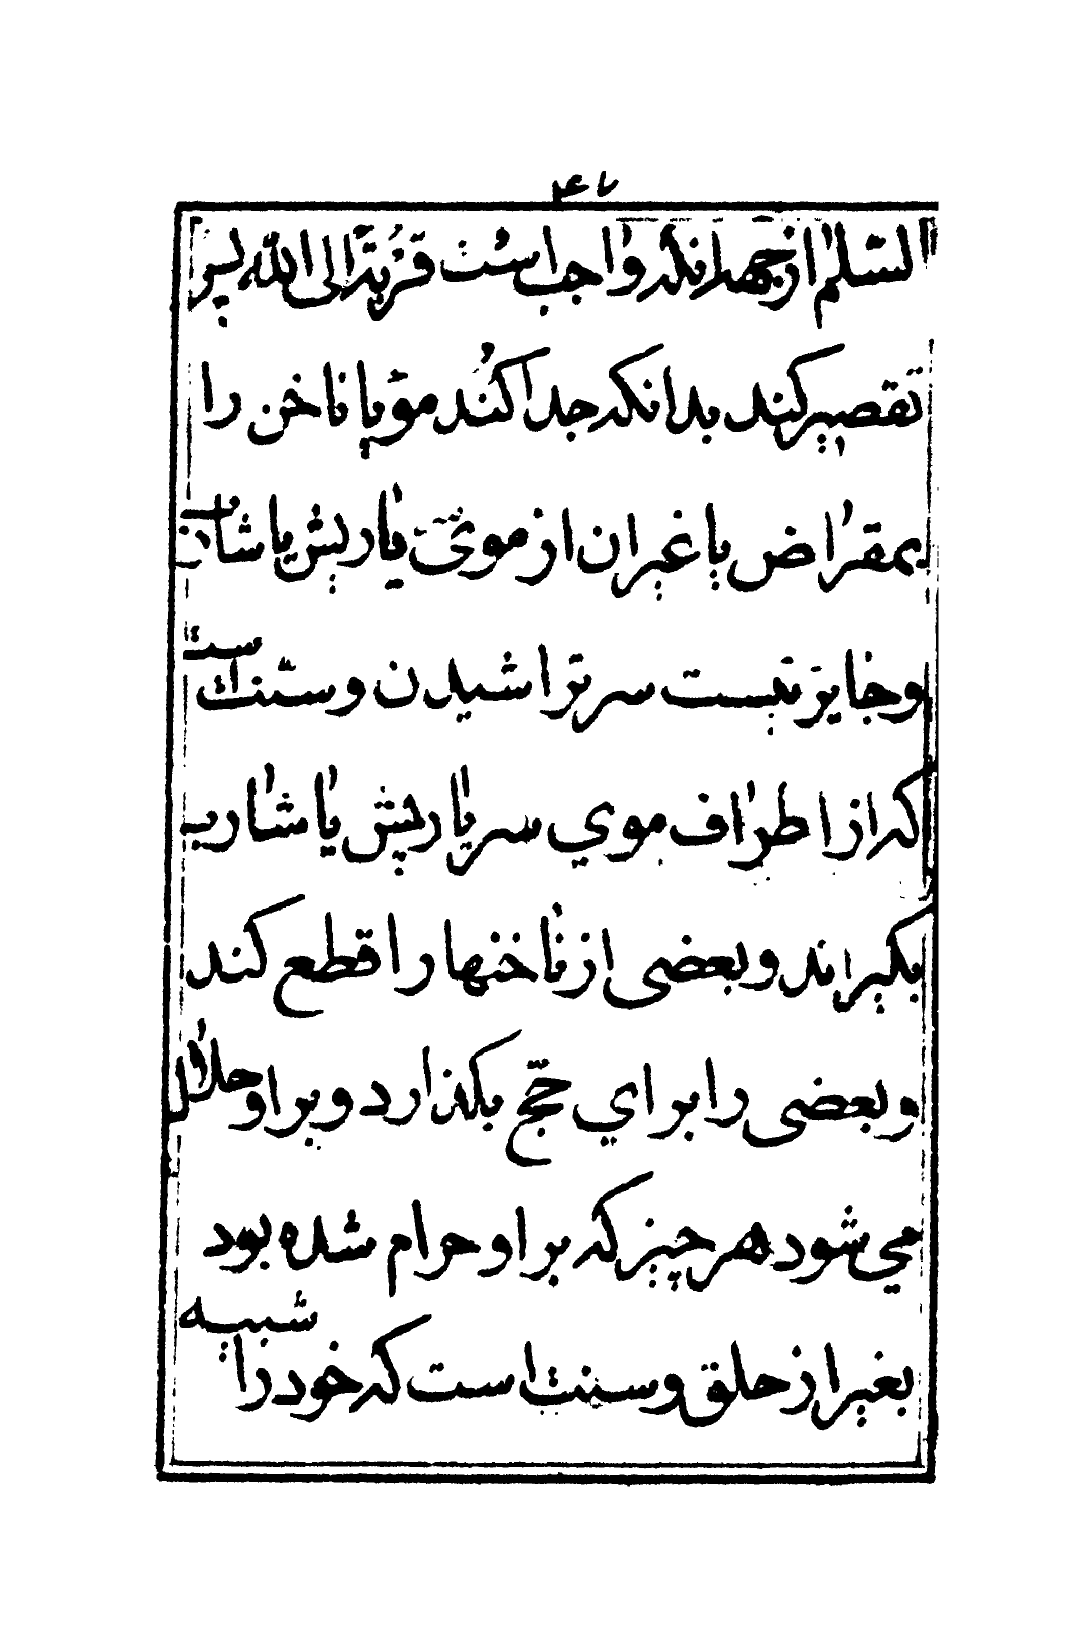 السّلم از جهه انکه واجب است قربة الی الله پس
تقصیر کند بدانکه جدا کند مو یا ناخن را
بمقراض یا غیر ان از موی یا ریش یا شارب
و جایز نیست سر تراشیدن و سنّت است
که از اطراف موي سر یا ریش یا شارب
بگیراند و بعضی از ناخنها را قطع کند
و بعضی را براي حجّ بکذارد و بر او حلال
مي شود هر چیز که بر او حرام شده بود
بغیر از حلق و سنت است که خود را شبیه